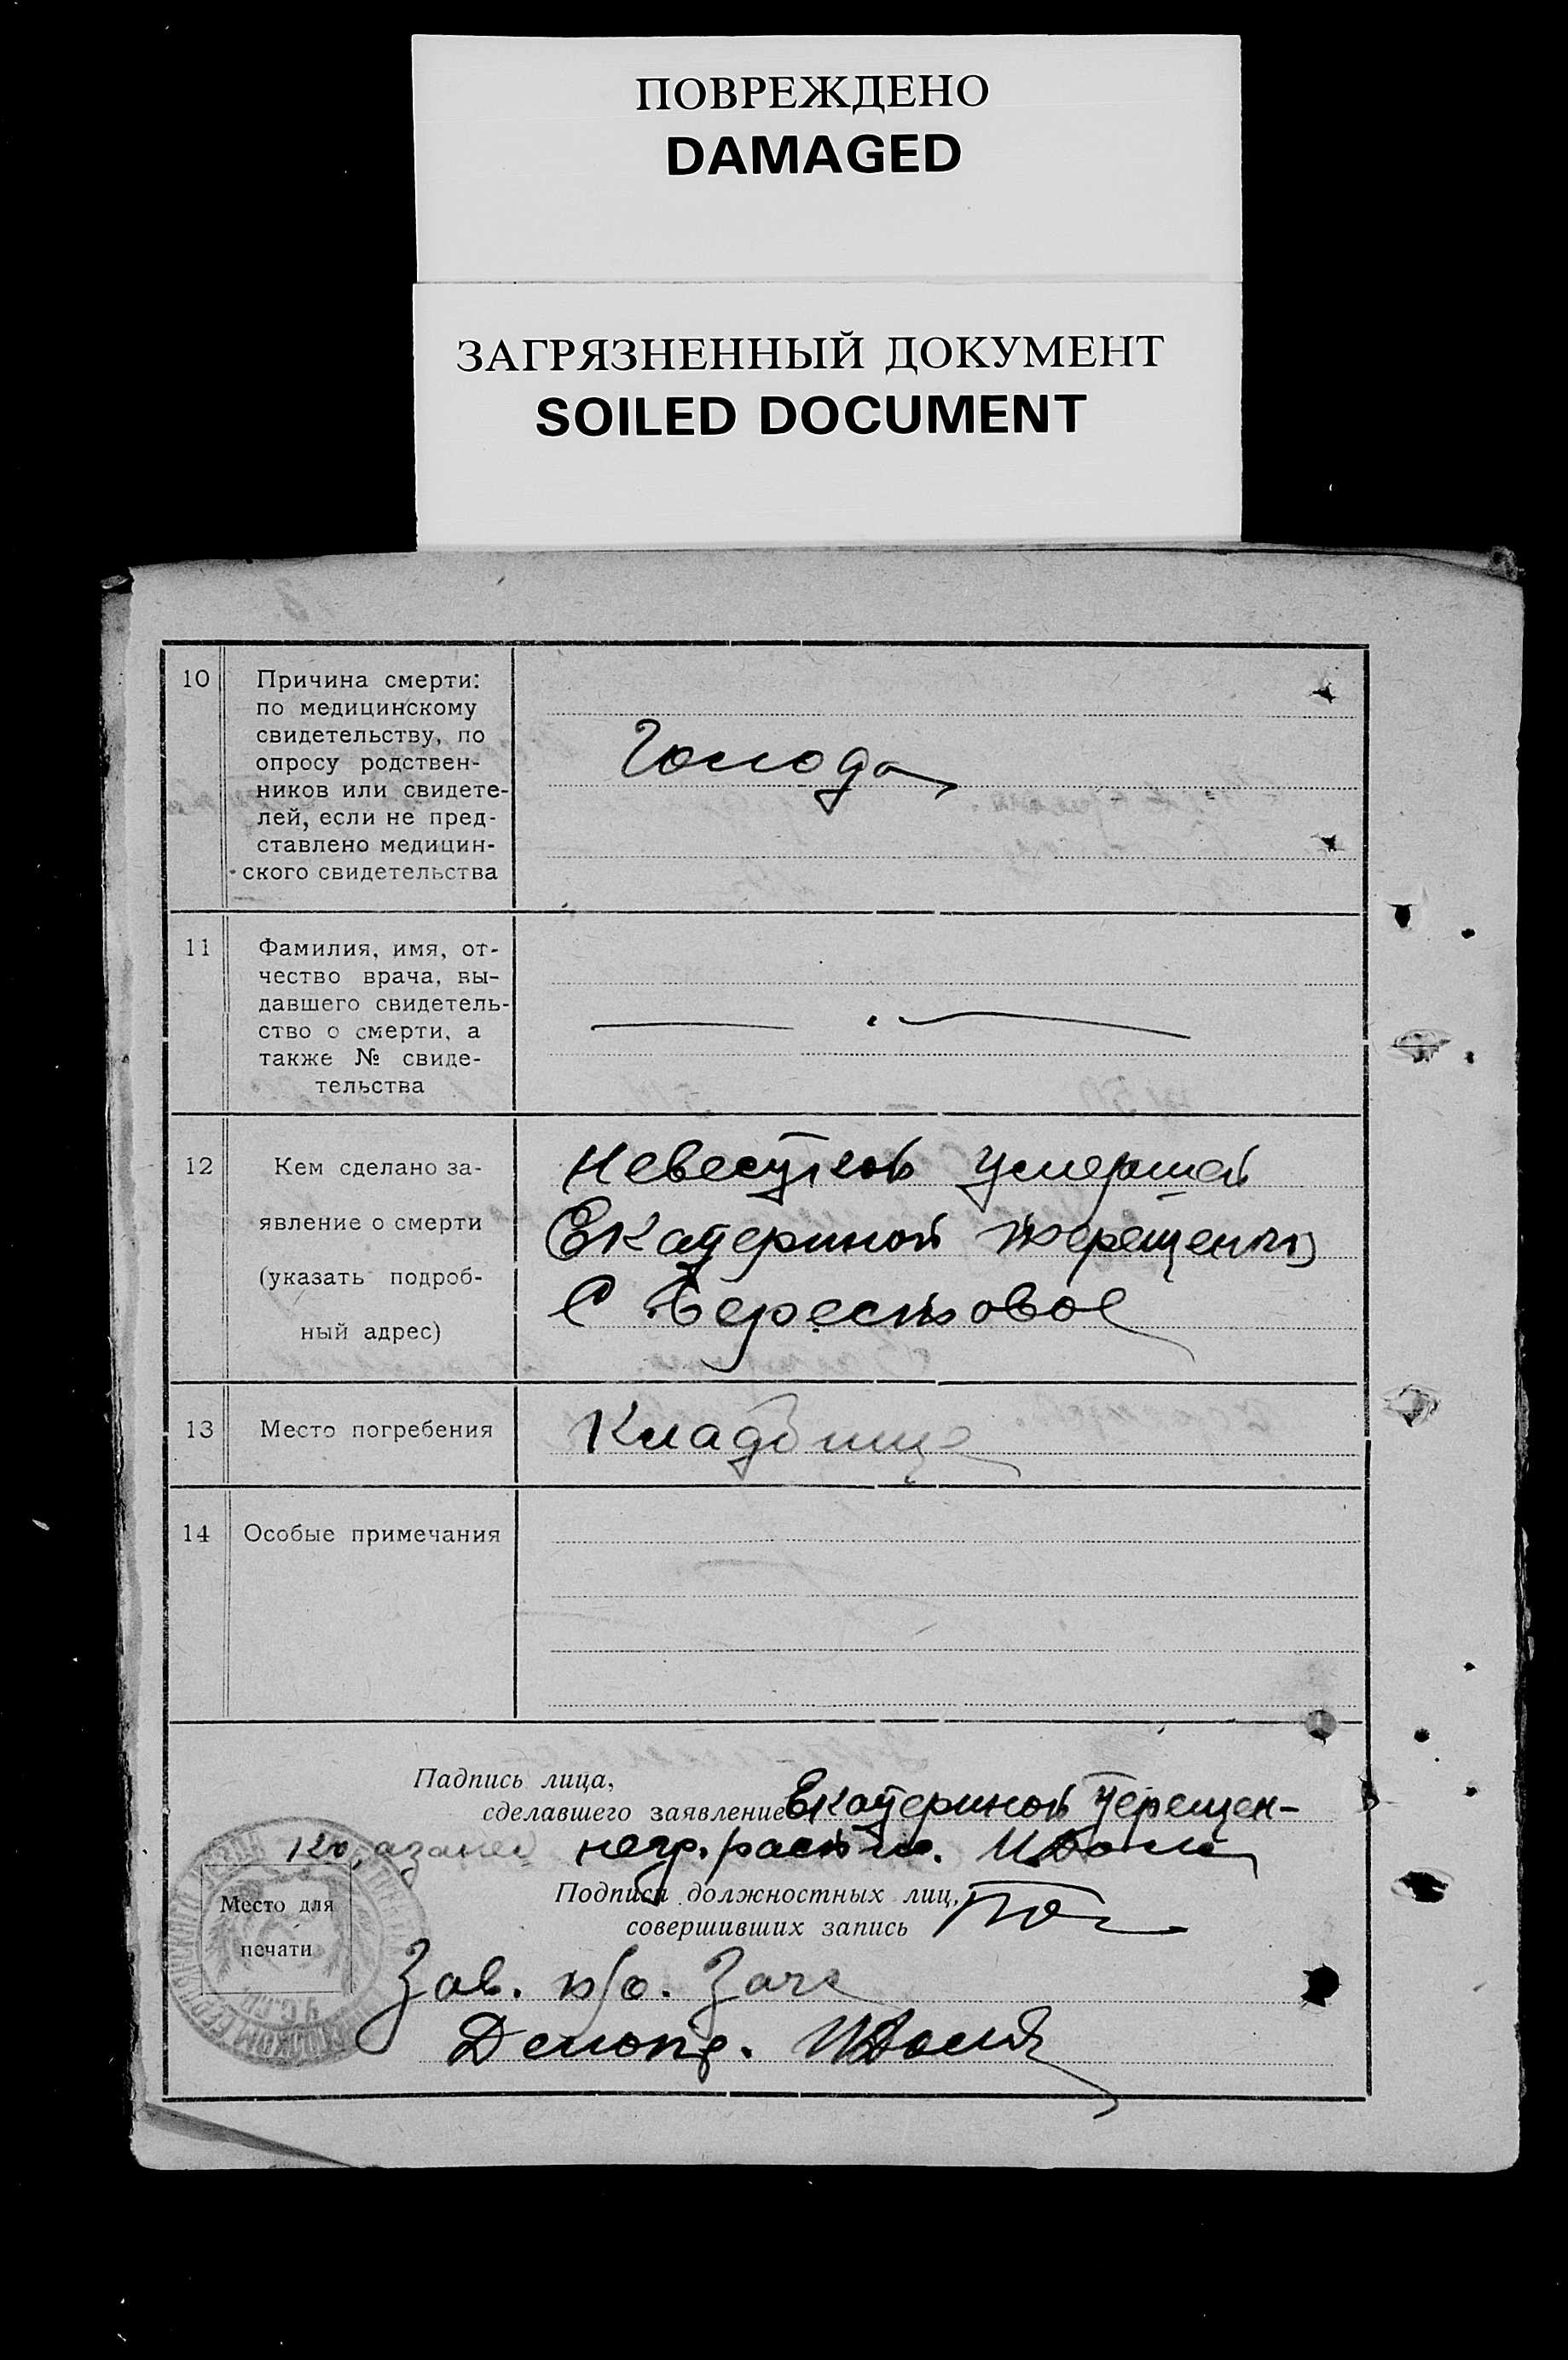 ПОВРЕЖДЕНО
DAMAGED
ЗАГРЯЗНЕННЫЙ ДОКУМЕНТ
SOILED DOCUMENT
10
Причина смерти:
по медицинскому
свидетельству, по
опросу родствен-
ников или свидете-
лей, если не пред-
ставлено медицин-
ского свидетельства
Голода
11
Фамилия, имя, от-
чество врача, вы-
давшего свидетель-
ство о смерти, а
также № свиде-
тельства
12
Кем сделано за-
явление о смерти
(указать подроб-
ный адрес)
Невесткой умершей
Екатериной Терещенко
С Берестовое
13
Место погребения
Кладбище
14
Особые примечания
Падпись лица,
сделавшего заявление Екатериной Терещен-
ко, негр.
Подписи должностных лиц,
совершивших запись
Место для
печати
Зав.
Делопр.